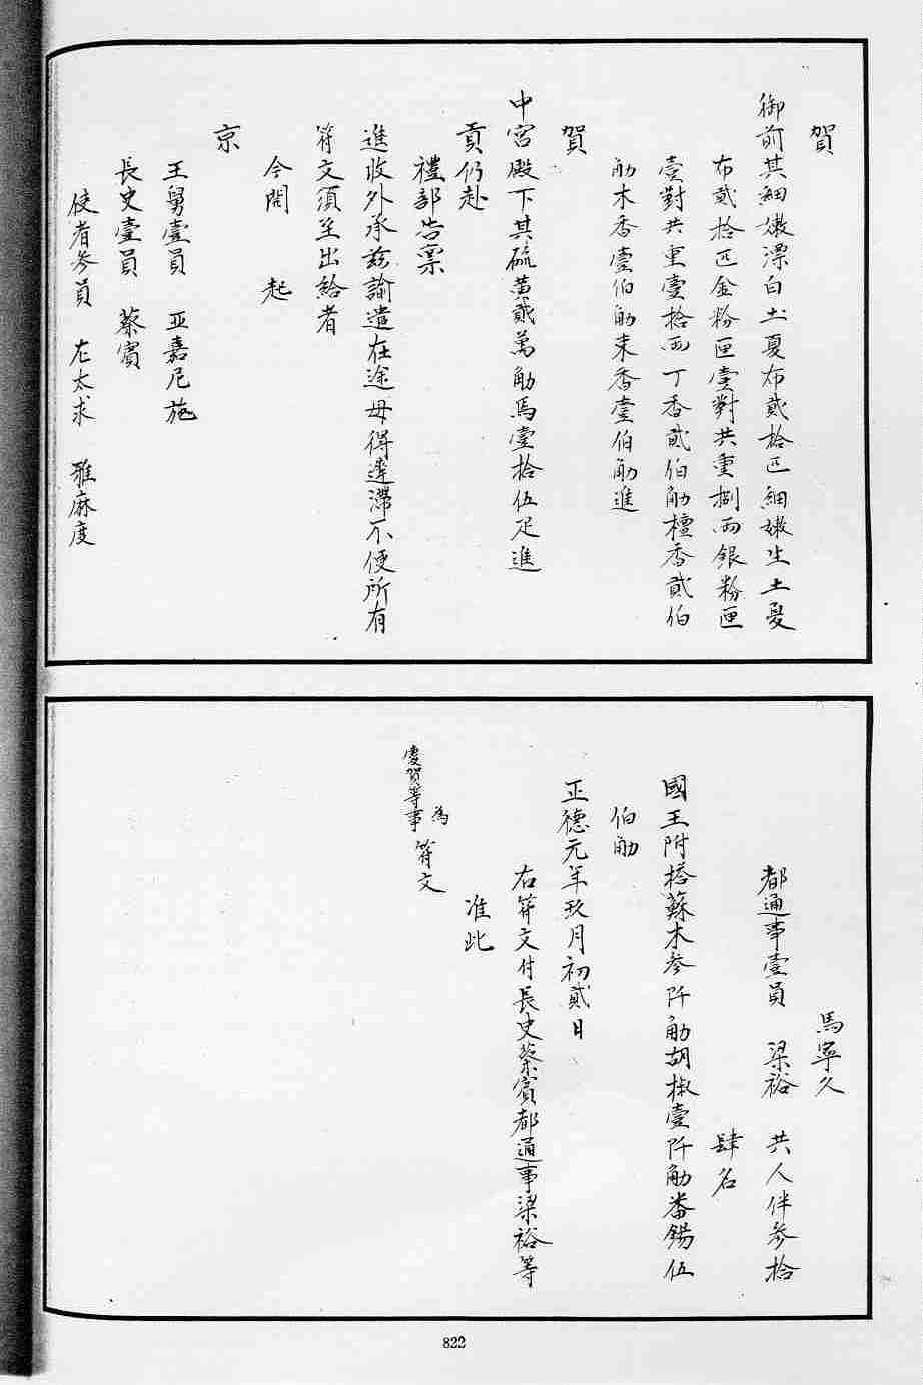 賀
御前其細嫩漂白土夏布貳拾匹細嫩生土夏
布貳拾匹金粉匣壹對共重捌兩銀粉匣
壹對共重壹拾兩丁香貳伯觔檀香貳伯
觔木香壹伯觔束香壹伯觔進
賀
中宮殿下其硫黄貳萬觔馬壹拾伍疋進
貢仍赴
禮部告稟
進收外承玆諭遣在途毋得違滯不便所有
符文須至出給者
今開 起
京
王舅壹員 亞嘉尼施
長史壹員 蔡賓
使者參員 左太求 雅麻度
馬寧久
都通事壹員 梁裕 共人伴參拾
肆名
國王附搭蘇木參阡觔胡椒壹阡觔番錫伍
伯觔
正德元年玖月初貳日
右符文付長史蔡賓都通事梁裕等
准此
為
慶賀等事
符文
822